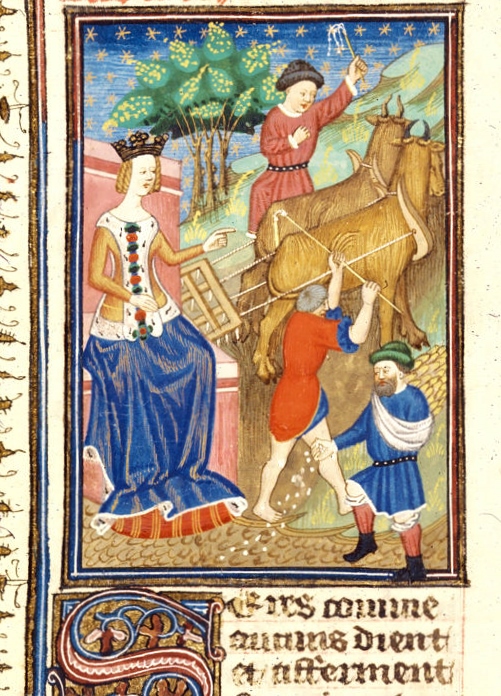 SEres comme
aucuns dient
et afferment